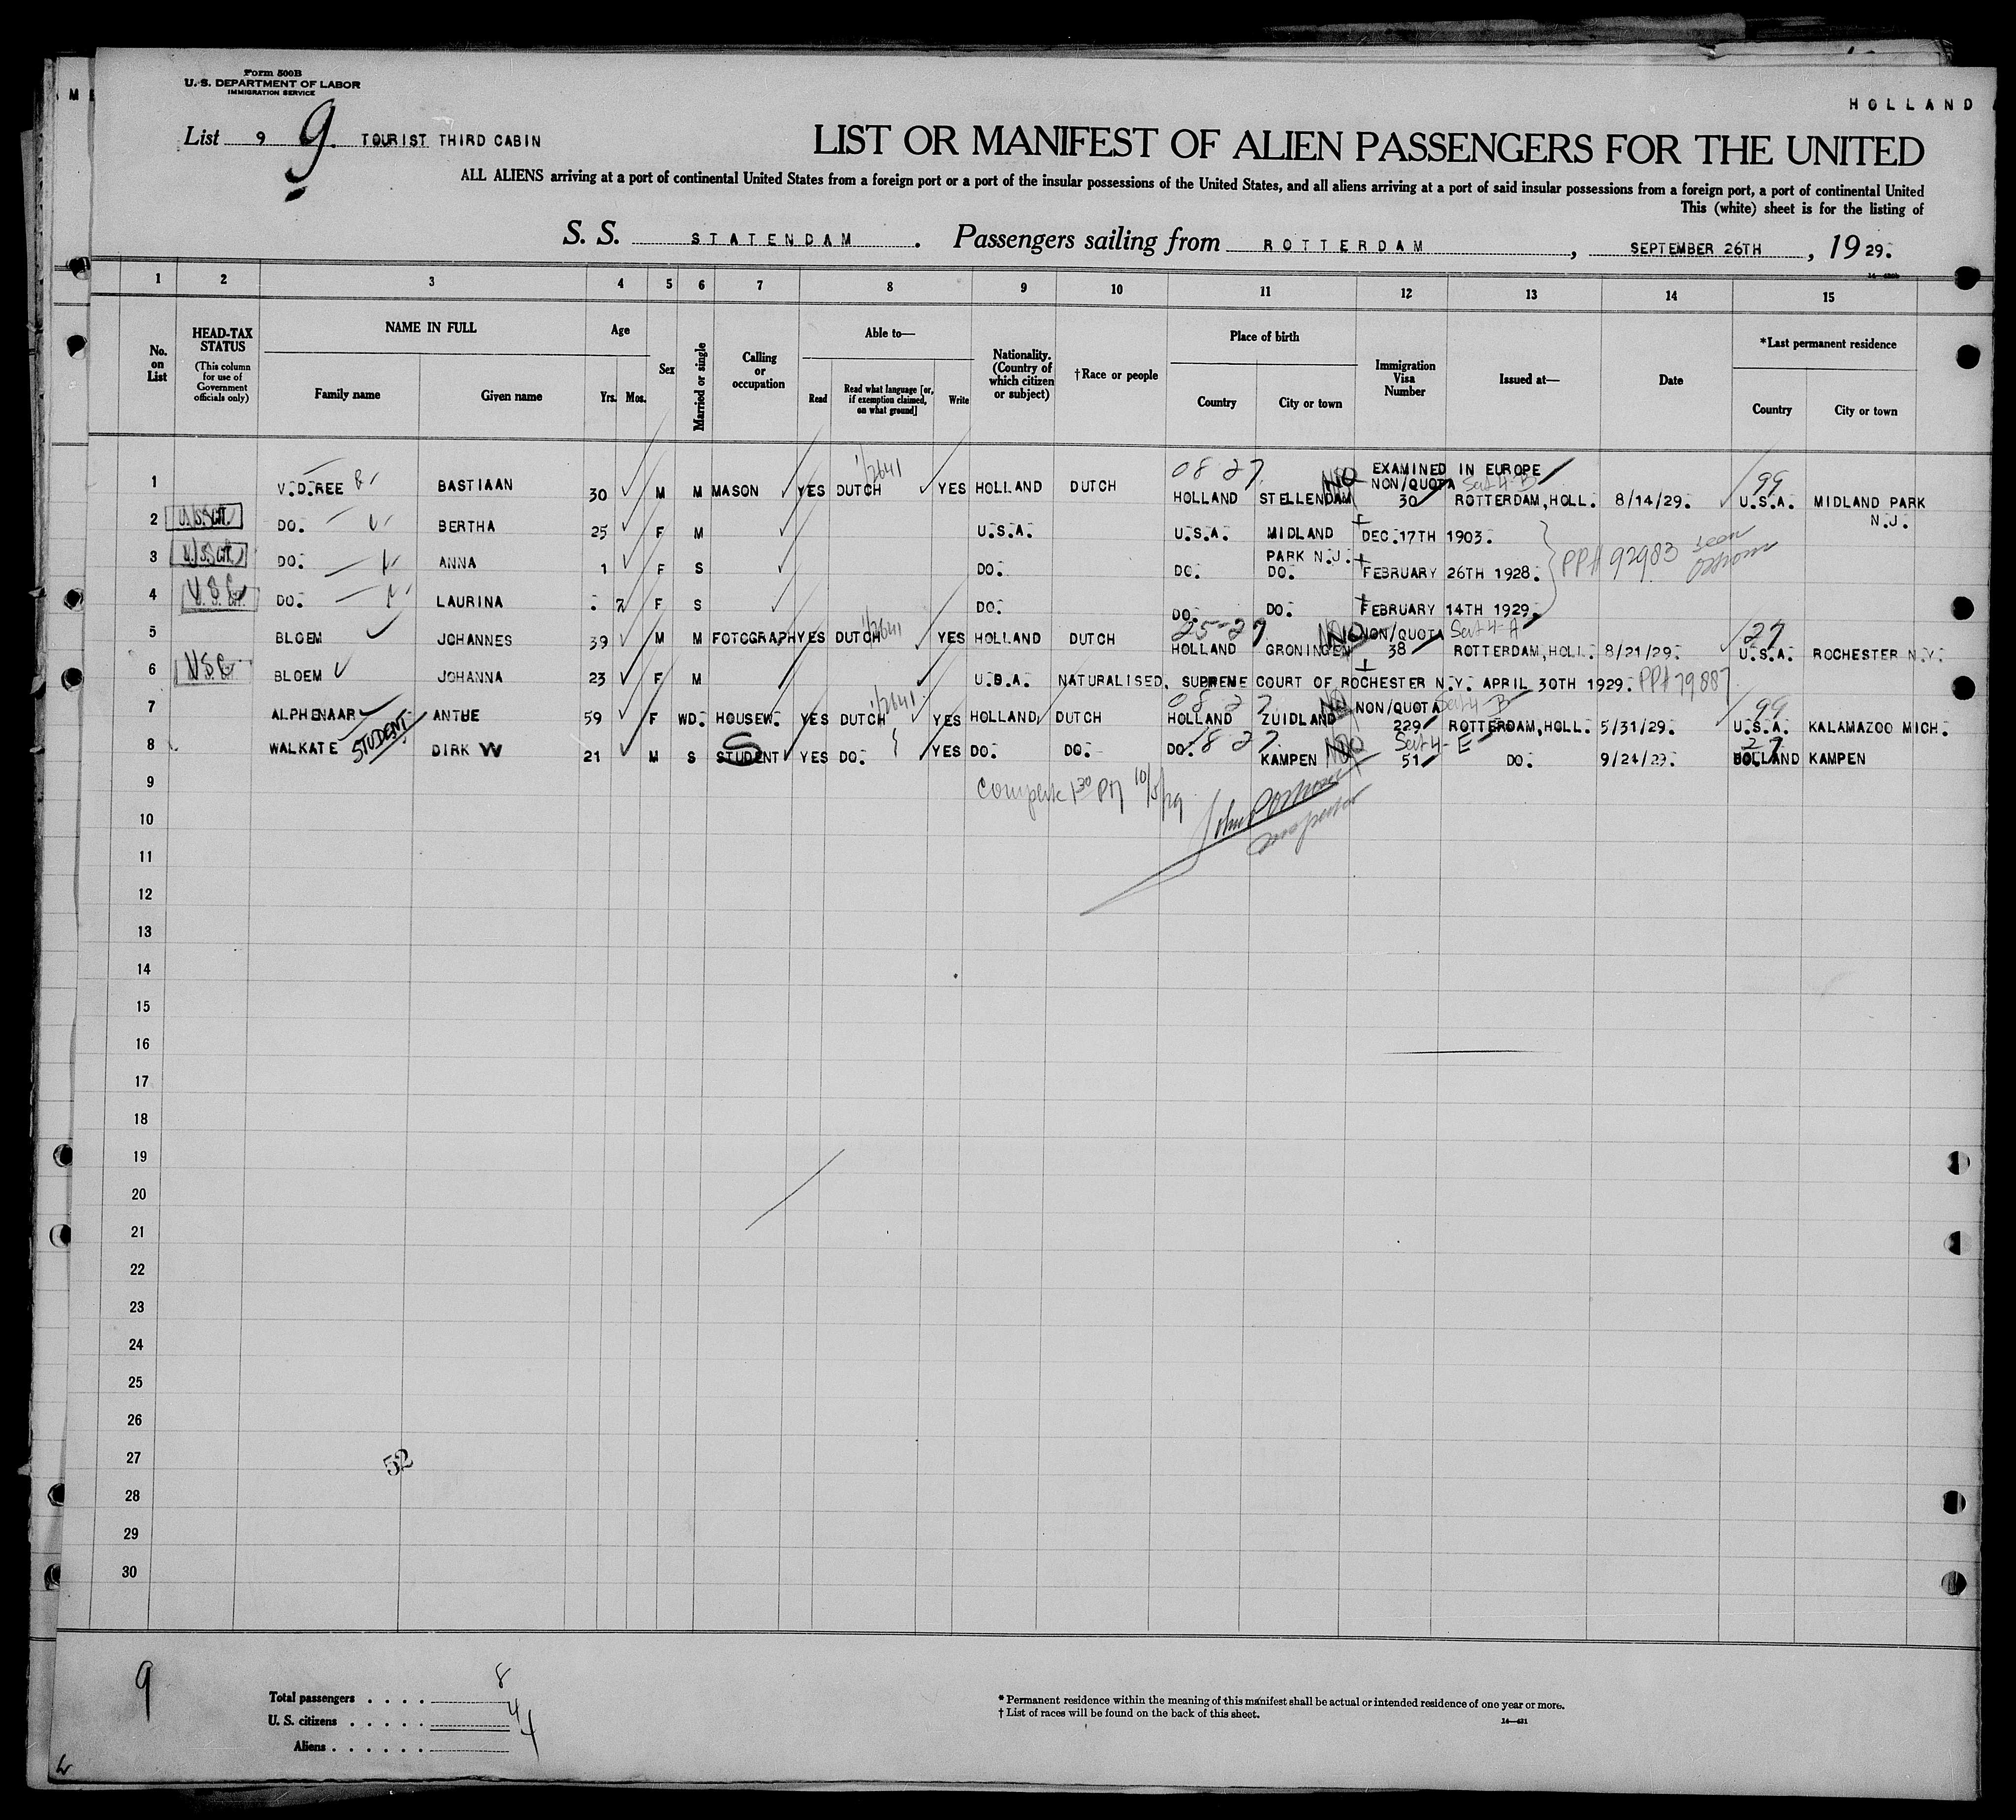 Form 500B
U. S. DEPARTMENT OF LABOR
IMMIGRATION SERVICE
HOLLAND
List 9 9. TOURIST THIRD CABIN
LIST OR MANIFEST OF ALIEN PASSENGERS FOR THE UNITED
ALL ALIENS arriving at a port of continental United States from a foreign port or a port of the insular possessions of the United States, and all aliens arriving at a port of said insular possessions from a foreign port, a port of continental United
This (white) sheet is for the listing of
S. S. STATENDAM. Passengers sailing from ROTTERDAM, SEPTEMBER 26TH, 1929.
1 2 3 4 5 6 7 8 9 10 11 12 13 14 15
No. on List
HEAD-TAX STATUS (This column for use of Government officials only)
NAME IN FULL
Family name Given name
Age
Yrs. Mos.
Sex
Married or single
Calling or occupation
Able to—
Read
Read what language [or, if exemption claimed, on what ground]
Write
Nationality. (Country of which citizen or subject)
†Race or people
Place of birth
Country City or town
Immigration Visa Number
Issued at—
Date
*Last permanent residence
Country City or town
EXAMINED IN EUROPE
1 V.D.REE BASTIAAN 30 M M MASON YES DUTCH YES HOLLAND DUTCH 08 27 HOLLAND STELLENDAM NON/QUOTA Sect 4-B 30 ROTTERDAM, HOLL. 8/14/29. 99 U.S.A. MIDLAND PARK N.J.
2 DO. BERTHA 25 F M U.S.A. U.S.A. MIDLAND PARK N.J. DEC.17TH 1903.
3 DO. ANNA 1 F S DO. DO. DO. FEBRUARY 26TH 1928. PP# 92983 seen
4 USC DO. LAURINA . 7 F S DO. DO. DO. FEBRUARY 14TH 1929.
5 BLOEM JOHANNES 39 M M FOTOGRAPH YES DUTCH YES HOLLAND DUTCH 25-27 HOLLAND GRONINGEN NON/QUOTA Sect 4-A 38 ROTTERDAM, HOLL. 8/21/29. 27 U.S.A. ROCHESTER N.Y.
6 USC BLOEM JOHANNA 23 F M U.S.A. NATURALISED, SUPREME COURT OF ROCHESTER N.Y. APRIL 30TH 1929. PP# 79887
7 ALPHENAAR ANTJE 59 F WD. HOUSEW. YES DUTCH YES HOLLAND DUTCH 08 27 HOLLAND ZUIDLAND NON/QUOTA Sect 4-B 229 ROTTERDAM, HOLL. 5/31/29. 99 U.S.A. KALAMAZOO MICH.
8 WALKATE STUDENT DIRK W 21 M S STUDENT YES DO. YES DO. DO. DO. 18 27 KAMPEN NO Sect 4-E 51 DO. 9/24/29. 27 HOLLAND KAMPEN
9 Complete 1 30 PM 10/5/29
Inspector
10
11
12
13
14
15
16
17
18
19
20
21
22
23
24
25
26
27 52
28
29
30
9
Total passengers . . . . 8
U. S. citizens . . . . . 4
Aliens . . . . . . 4
* Permanent residence within the meaning of this manifest shall be actual or intended residence of one year or more.
† List of races will be found on the back of this sheet.